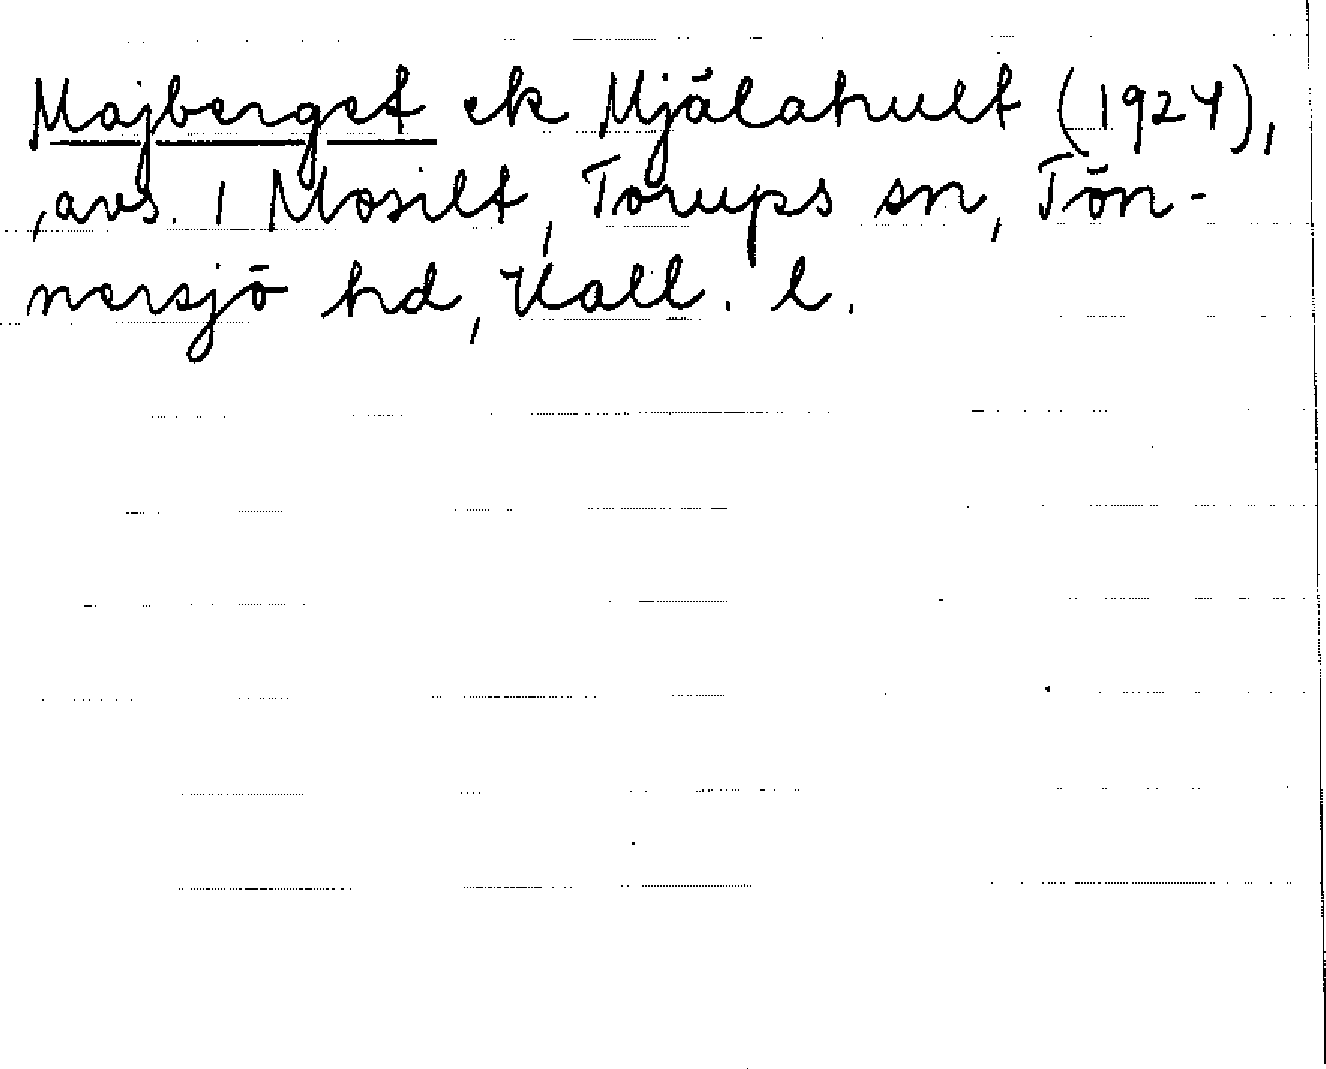 Majberget ek Mjälahult (1924),
, avs. i Mosilt, Torups sn, Tön-
nersjö hd, Hall. l.